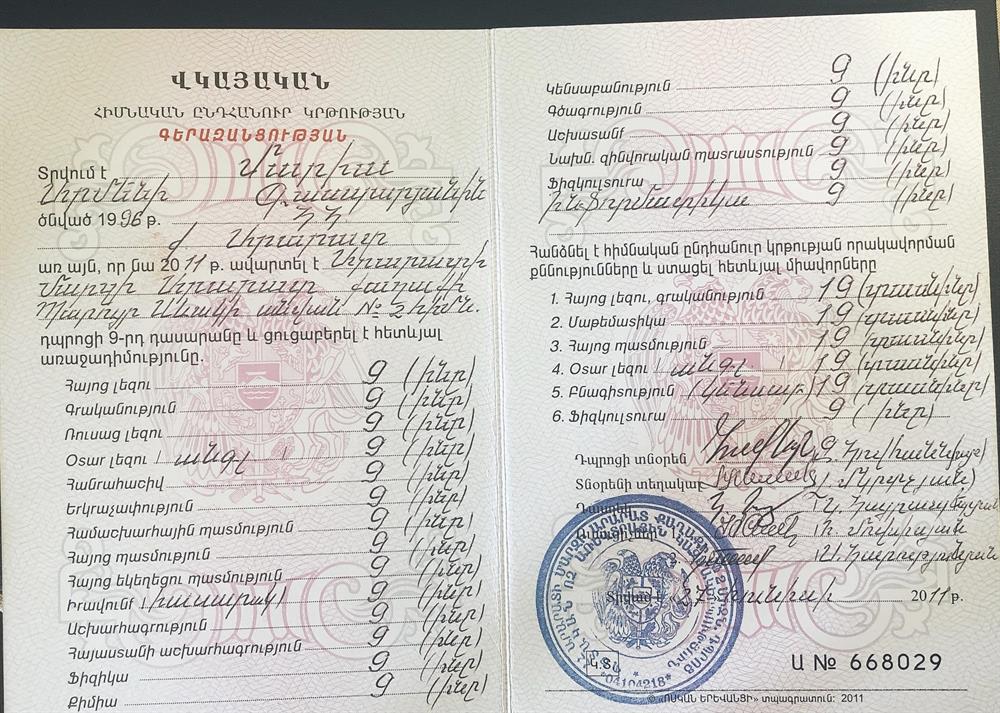 ՎԿԱՅԱԿԱՆ
ՀԻՄՆԱԿԱՆ ԸՆԴՀԱՆՈՒՐ ԿՐԹՈՒԹՅԱՆ
ԳԵՐԱԶԱՆՑՈՒԹՅԱՆ
Տրվում է Մարիա
Արմենի Գասպարյանին
ծնված 1996 թ. ՀՀ
ք. Արարատ
առ այն, որ նա 2011 թ. ավարտել է Արարատի
մարզի Արարատ քաղաքի
Պարույր Սևակի անվան № 2 հիմն.
դպրոցի 9-րդ դասարանը և ցուցաբերել է հետևյալ
առաջադիմությունը.
Հայոց լեզու 9 (ինը)
Գրականություն 9 (ինը)
Ռուսաց լեզու 9 (ինը)
Օտար լեզու / անգլ / 9 (ինը)
Հանրահաշիվ 9 (ինը)
Երկրաչափություն 9 (ինը)
Համաշխարհային պատմություն 9 (ինը)
Հայոց պատմություն 9 (ինը)
Հայոց եկեղեցու պատմություն 9 (ինը)
Իրավունք (հասարակ) 9 (ինը)
Աշխարհագրություն 9 (ինը)
Հայաստանի աշխարհագրություն 9 (ինը)
Ֆիզիկա 9 (ինը)
Քիմիա 9 (ինը)
Կենսաբանություն 9 (ինը)
Գծագրություն 9 (ինը)
Աշխատանք 9 (ինը)
Նախն. զինվորական պատրաստություն 9 (ինը)
Ֆիզկուլտուրա 9 (ինը)
Ինֆորմատիկա 9 (ինը)
Հանձնել է հիմնական ընդհանուր կրթության որակավորման
քննությունները և ստացել հետևյալ միավորները
1. Հայոց լեզու, գրականություն 19 (տասնինը)
2. Մաթեմատիկա 19 (տասնինը)
3. Հայոց պատմություն 19 (տասնինը)
4. Օտար լեզու / անգլ / 19 (տասնինը)
5. Բնագիտություն (կենսաբ) 19 (տասնինը)
6. Ֆիզկուլտուրա 9 (ինը)
Դպրոցի տնօրեն
Տնօրենի տեղակալ
Տրված է 2011 թ.
Կ.Տ.
*04104218*
Ա № 668029
© «ՈՍԿԱՆ ԵՐԵՎԱՆՑԻ» տպագրատուն: 2011